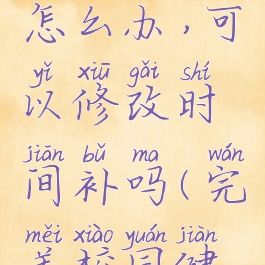 怎么办，可
yǐ xiū gǎi shí
以修改时
jiān bǔ ma wán
间补吗(完
měi xiào yuán jiàn
美校园健